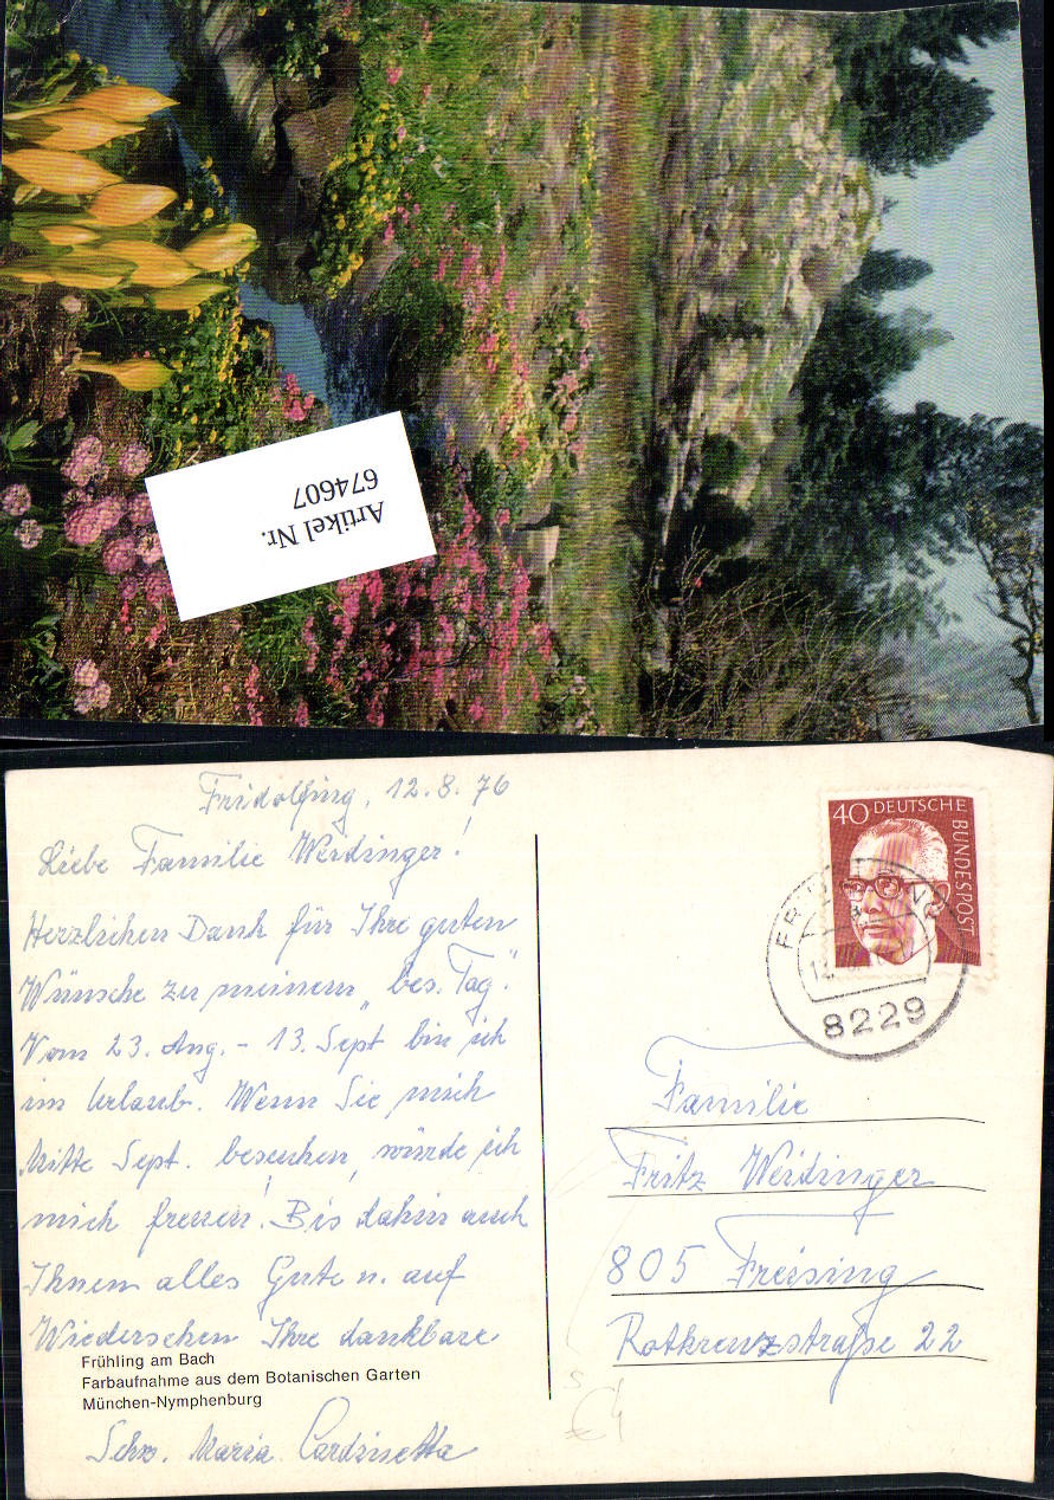 Artikel Nr.
674607
Fridolfing, 12.8.76
Liebe Familie Weidinger!
Herzlichen Dank für Ihre guten
Wünsche zu meinem „bes. Tag".
Vom 23. Aug. - 13. Sept bin ich
im Urlaub. Wenn Sie mich
Mitte Sept. besuchen, würde ich
mich freuen! Bis dahin auch
Ihnen alles Gute u. auf
Wiedersehen Ihre dankbare
Schw. Maria
Frühling am Bach
Farbaufnahme aus dem Botanischen Garten
München-Nymphenburg
40 DEUTSCHE BUNDESPOST
8229
Familie
Fritz Weidinger
805 Freising
Rotkreuzstraße 22